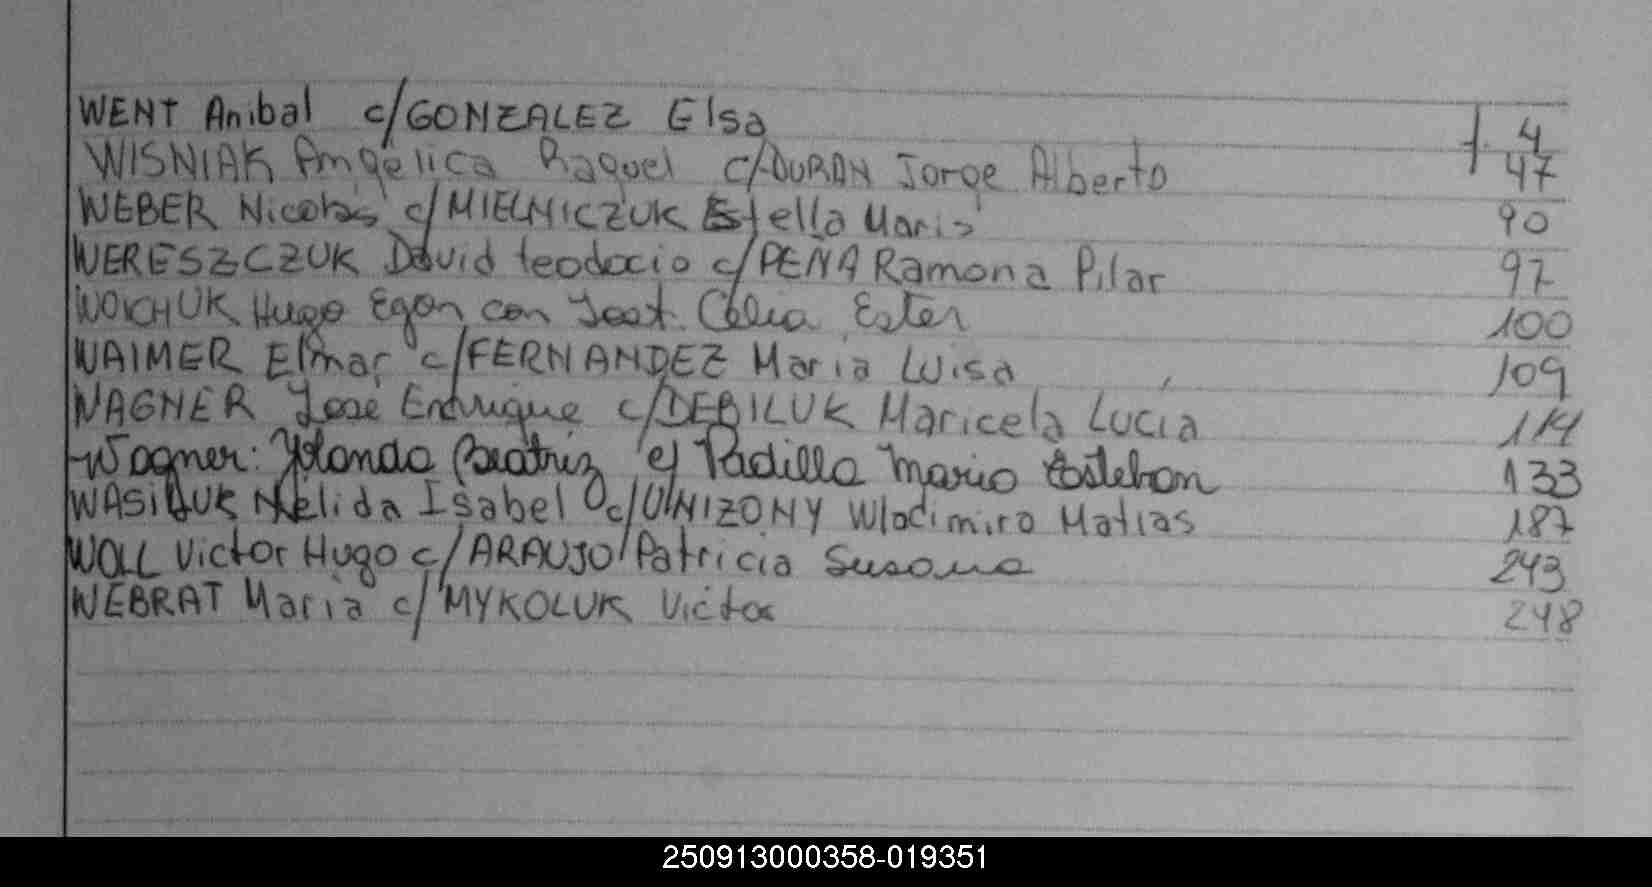 WENT Anibal c/GONZALEZ Elsa f. 4
WISNIAK Angélica Raquel c/DURAN Jorge Alberto f. 47
WEBER Nicolas c/MIELNICZUK Estella Maris 90
WERESZCZUK David teodocio c/PEÑA Ramona Pilar 97
WOICHUK Hugo Egon con Jost. Celia Ester 100
WAIMER Elmar c/FERNANDEZ Maria Luisa 109
WAGNER Jose Enrrique c/DEBILUK Maricela Lucía 114
Wagner: Yolanda Beatriz c/ Padilla Mario Esteban 133
WASILUK Nélida Isabel c/UINIZONY Wlodimiro Matias 187
WOLL Victor Hugo c/ARAUJO Patricia Susana 243
WEBRAT Maria c/MYKOLUK Victor 248
250913000358-019351